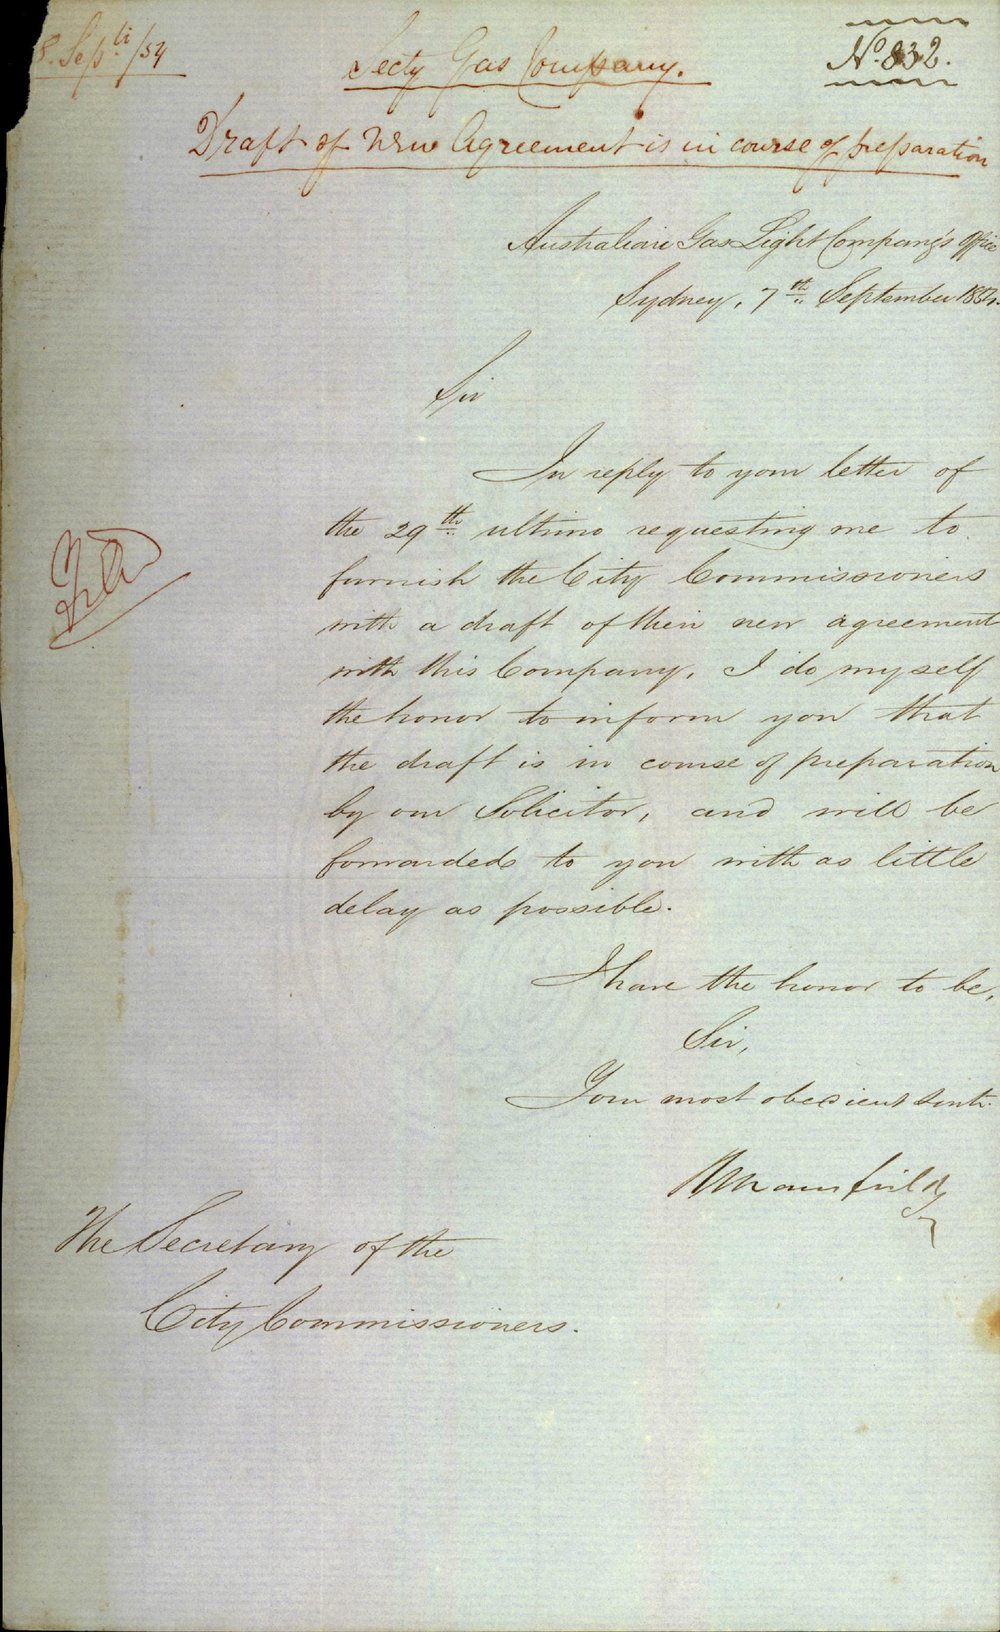 8. Septr /54
Secty Gas Company.
No. 832.
Draft of New Agreement is in course of preparation
Australian Gas Light Company's Office
Sydney, 7th September 1854.
Sir
In reply to your letter of
the 29th ultimo requesting me to
furnish the City Commissioners
with a draft of their new agreement
with this Company, I do myself
the honor to inform you that
the draft is in course of preparation
by our Solicitor, and will be
forwarded to you with as little
delay as possible.
I have the honor to be,
Sir,
Your most obedient Servt.
RMansfield
The Secretary of the
City Commissioners.